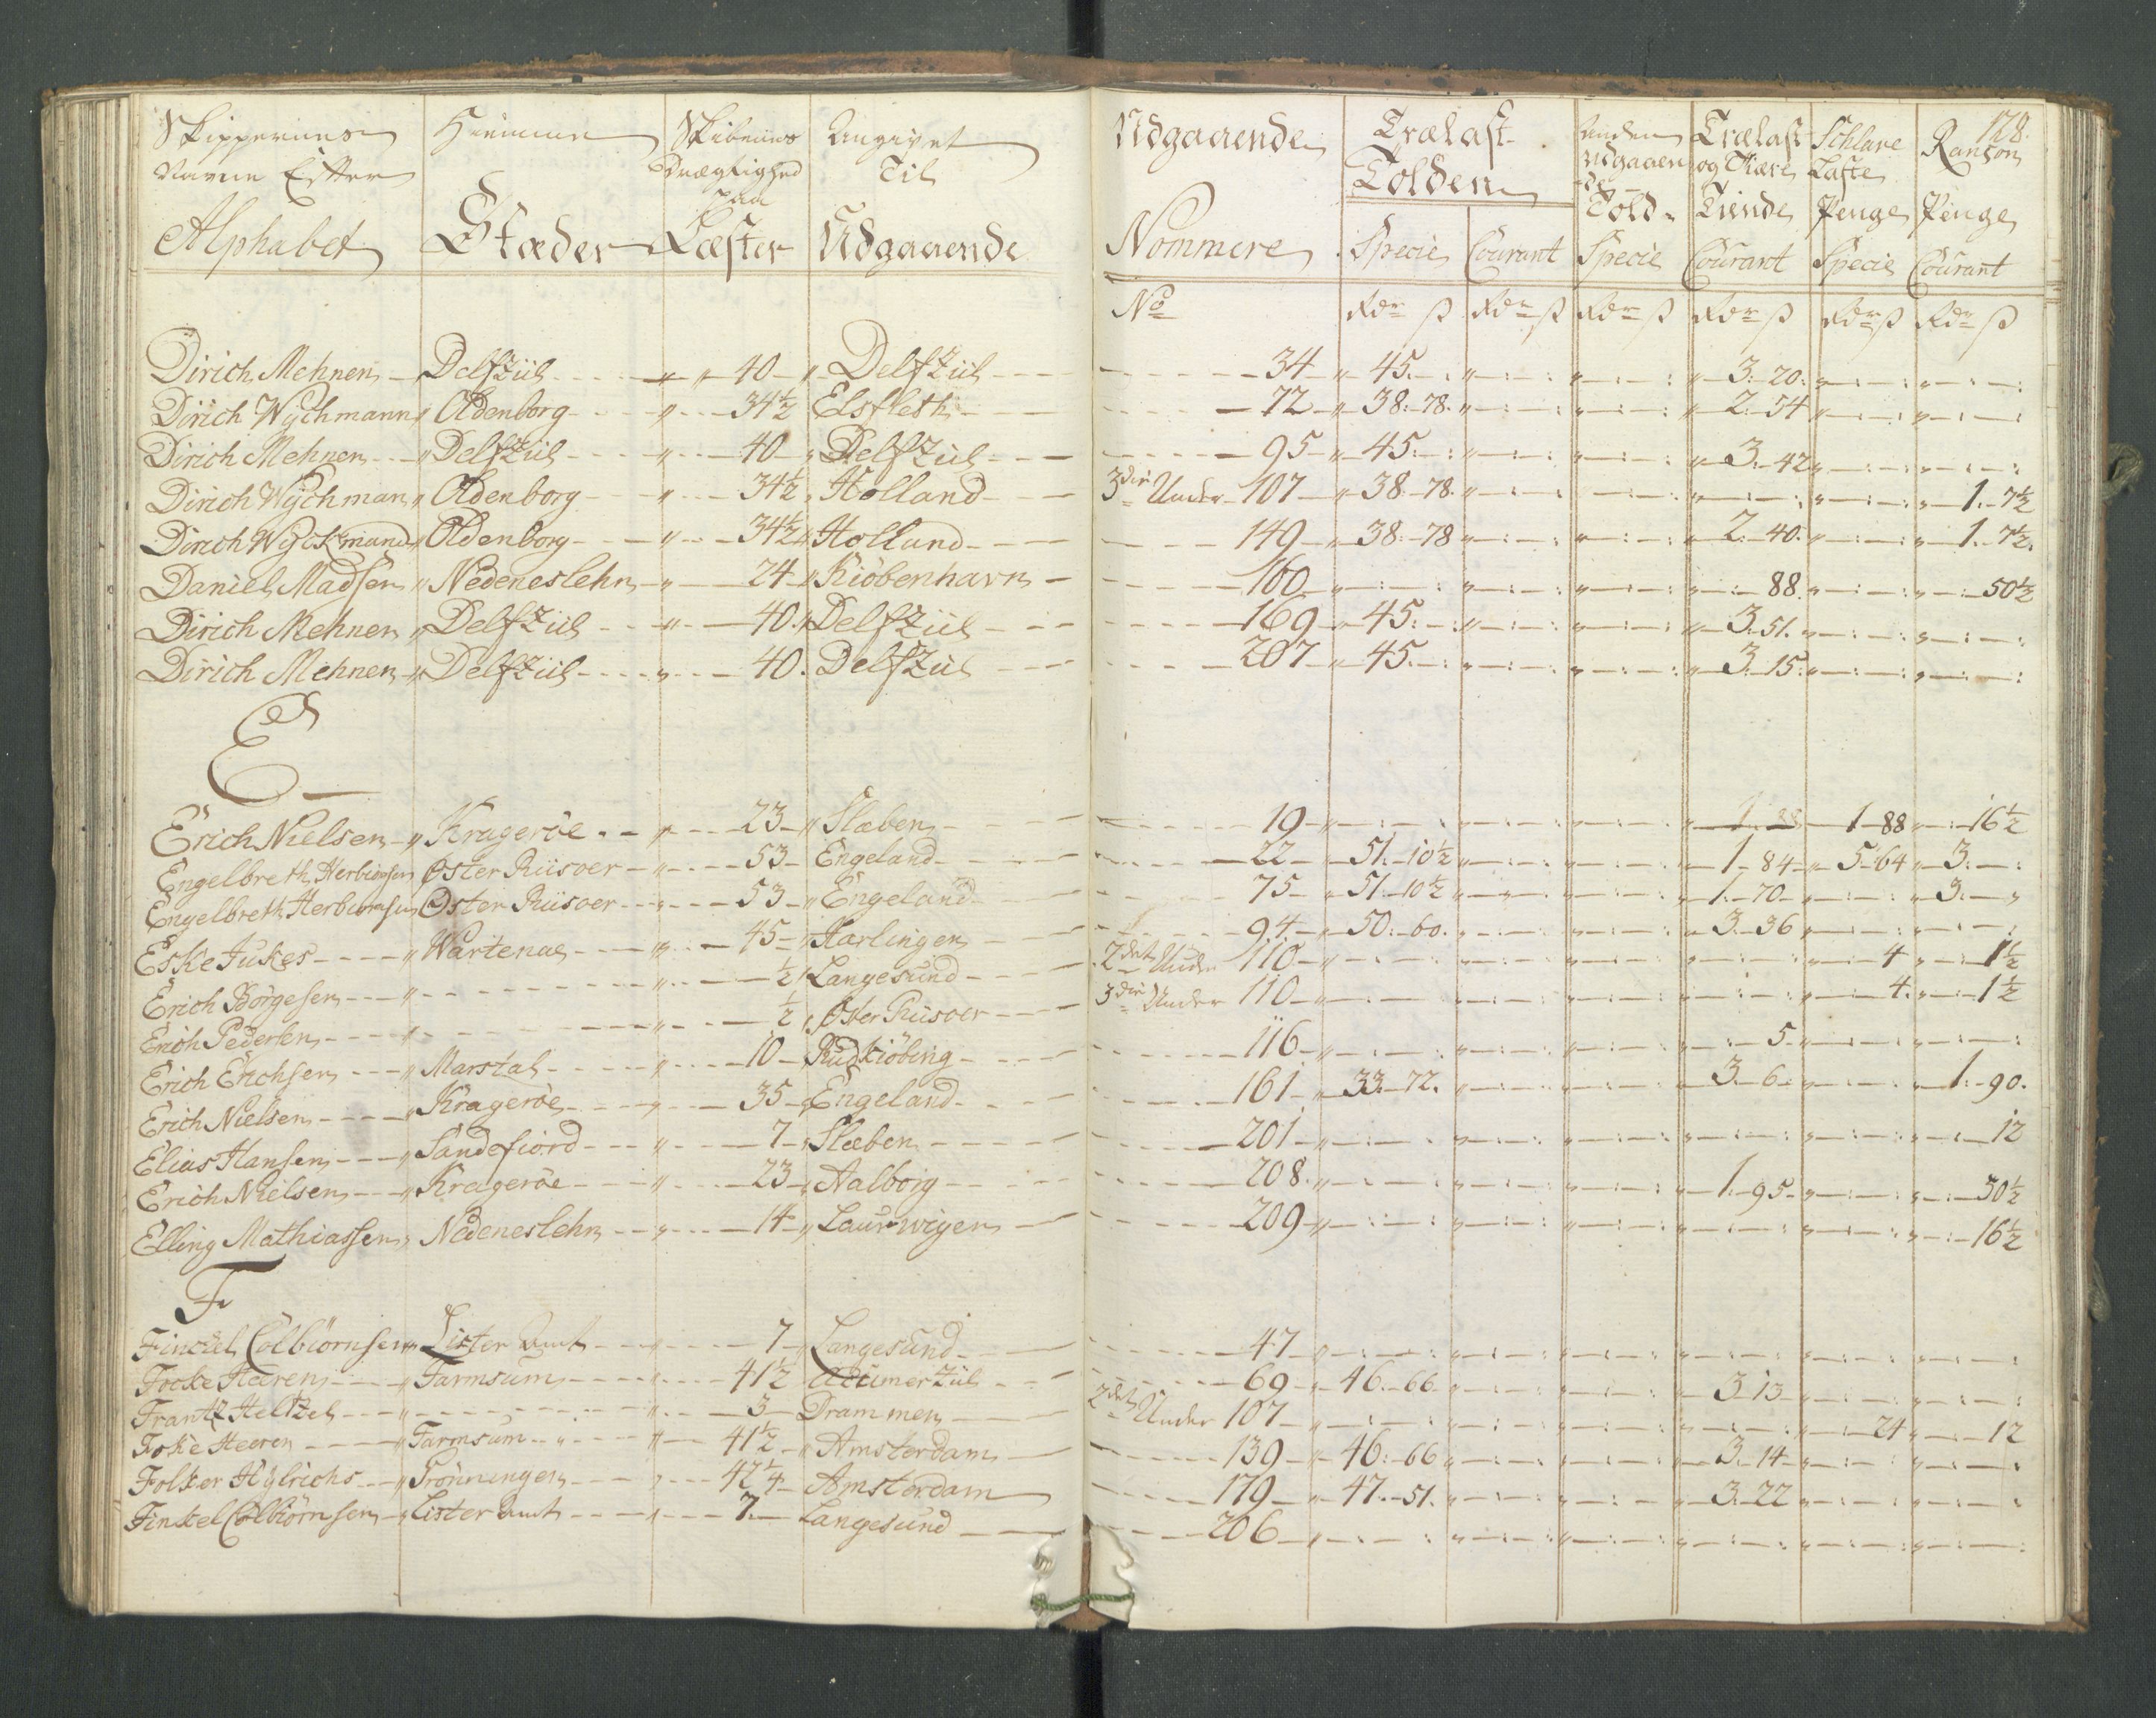 Skippernes Navne Efter Alphabet | Hiemme Stæder | Skibenes Drægtighed paa Læster | Angivet Til Udgaaende | Udgaaende Nommere | Trælast Tolden Specie | Courant | Anden Udgaaende Told Specie | Trælast og Tiære Tiende Courant | Schlave Laste Penge Specie | Ranson Penge Courant | 128.
No | Rdr ß | Rdr ß | Rdr ß | Rdr ß | Rdr ß | Rdr ß
Dirich Mehnen | Delfziil | 40 | Delfziil | 34 | 45 | 3. 20
Dirich Wychmann | Oldenborg | 34½ | Elsfleth | 72 | 38. 78. | 2. 54
Dirich Mehnen | Delfziil | 40 | Delfziil | 95 | 45 | 3. 42
Dirich Wychman | Oldenborg | 34½ | Holland | 3die Under 107 | 38. 78. | 1. 7½
Dirich Wyckmand | Oldenborg | 34½ | Holland | 149 | 38. 78 | 2. 40. | 1. 7½.
Daniel Madsen | Nedeneslehn | 24 | Kiöbenhavn | 160 | 88. | 50½
Dirich Mehnen | Delfziil | 40. | Delfziil | 169 | 45. | 3. 51.
Dirich Mehnen | Delfziil | 40. | Delfziil | 207 | 45. | 3. 15.
E
Erich Nielsen | Krageröe | 23 | Slæben | 19 | 1. 88 | 1. 88 | 16½
Engelbreth Herbiörnsen | Öster Riisoer | 53 | Engeland | 22 | 51. 10½ | 1. 84 | 5. 64 | 3.
Engelbreth Herbiörnsen | Öster Riisoer | 53 | Engeland | 75 | 51. 10½ | 1. 70 | 3.
Eske Jukes | Wartenae | 45 | Harlingen | 94 | 50. 60. | 3. 36
Erich Börgesen | ½ | Langesund | 2det Under 110 | 4 | 1½
Erich Pedersen | ½ | Öster Riisoer | 3die Under 110 | 4. | 1½
Erich Erichsen | Marstal | 10 | Rudkiöbing | 116 | 5
Erich Nielsen | Krageröe | 35 | Engeland | 161 | 33. 72. | 3. 6 | 1. 90.
Elias Hansen | Sandefiord | 7 | Slæben | 201 | 12
Erich Nielsen | Krageröe | 23 | Aalborg | 208. | 1. 95 | 30½
Elling Mathiassen | Nedeneslehn | 14 | Laurwigen | 209 | 16½
F
Finckel Colbiörnsen | Lister Amt | 7 | Langesund | 47
Focke Heeren | Farmsum | 41½ | Adumerziil | 69 | 46. 66 | 3. 13
Frantz Heltzel | 3 | Drammen | 2det Under 107 | 24 | 12
Foke Heeren | Farmsum | 41½ | Amsterdam | 139 | 46. 66 | 3. 14
Folker Hylrichs | Grönningen | 42¼ | Amsterdam | 179 | 47. 51. | 3. 22
Finkel Colbiörnsen | Lister Amt | 7. | Langesund | 206